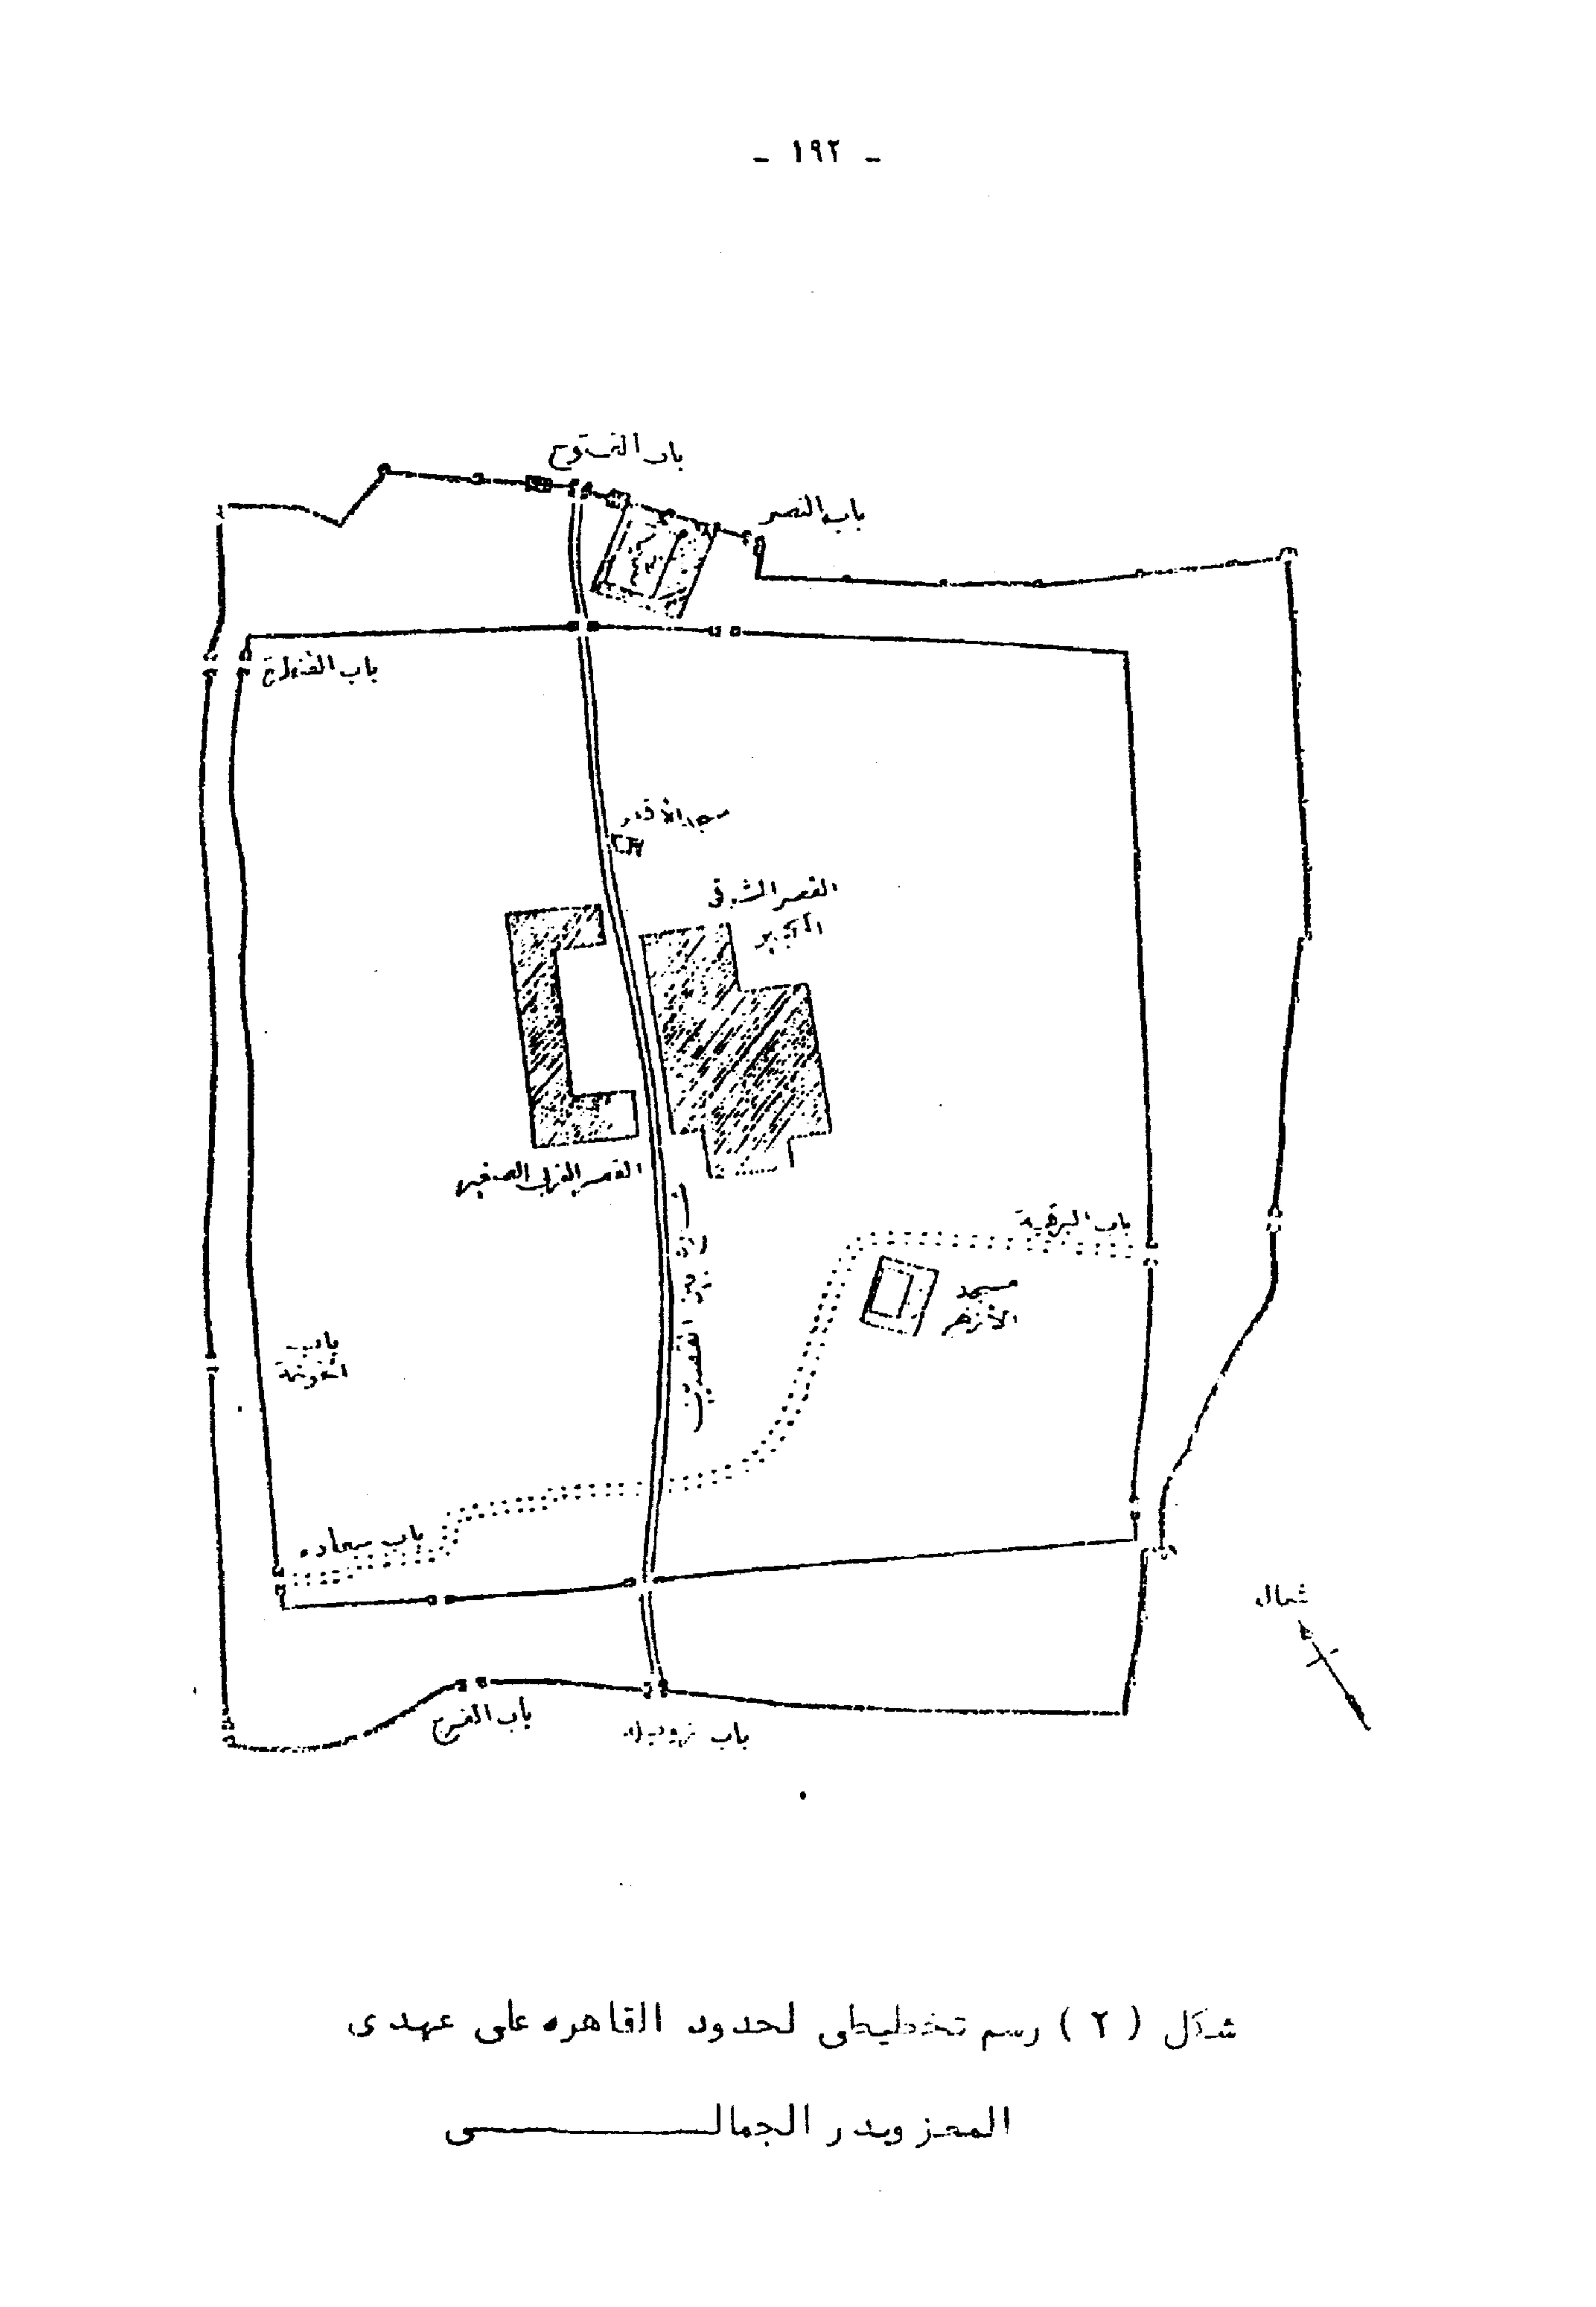 - ١٩٢ -
باب الفتوح
باب النصر
باب القنطرة
مسجد الأقمر
القصر الشرقى
الكبير
القصر الغربى الصغير
باب البرقية
مسجد
الأزهر
باب
الخوخة
باب سعاده
شمال
باب الفرج
باب زويله
شكل ( ٢ ) رسم تخطيطى لحدود القاهره على عهدى
المعز وبدر الجمالى